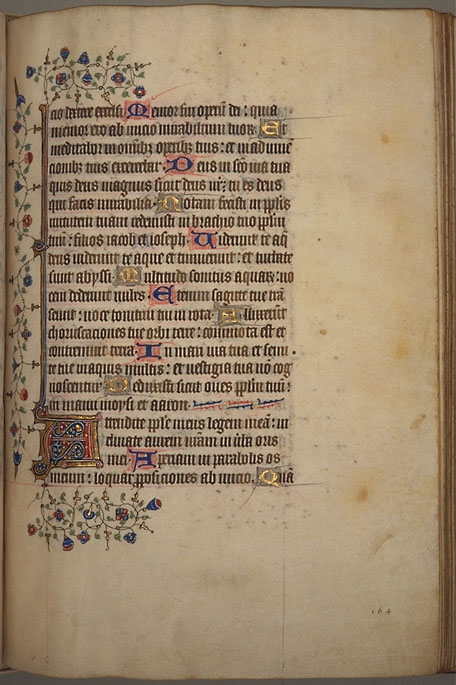 cio dextere excelsi. Memor fui operū dn̄i : quia
memor ero ab inicio mirabilium tuoꝝ. Et
meditabor in omībꝫ operibꝫ tuis : et in adinuē
cionibꝫ tuis exercebor. Deus in scō uia tua
quis deus magnus sicut deus nr̄ : tu es deus
qui facis mirabilia. Notam fecisti in pplīs
uirtutem tuam redemisti in brachio tuo pplm̄
tuū : filios iacob et ioseph. Uiderunt te aq̄
deus uiderunt te aque et timuerunt : et turbate
sunt abyssi. Multitudo sonitus aquaꝝ : uo
cem dederunt nubes. Etenim sagitte tue trā
seunt : uox tonitrui tui in rota. Alluxerunt
choruscaciones tue orbi terre : commota est et
contremuit terra. In mari uia tua et semi
te tue in aquis multis : et uestigia tua nō cog
noscentur. Deduxisti sicut oues pplm̄ tuū :
in manu moysi et aaron.
Attendite pple meus legem meā : in
clinate aurem urām in uba oris
mei. Aperiam in parabolis os
meum : loquar pposiciones ab inicio. Quā
164